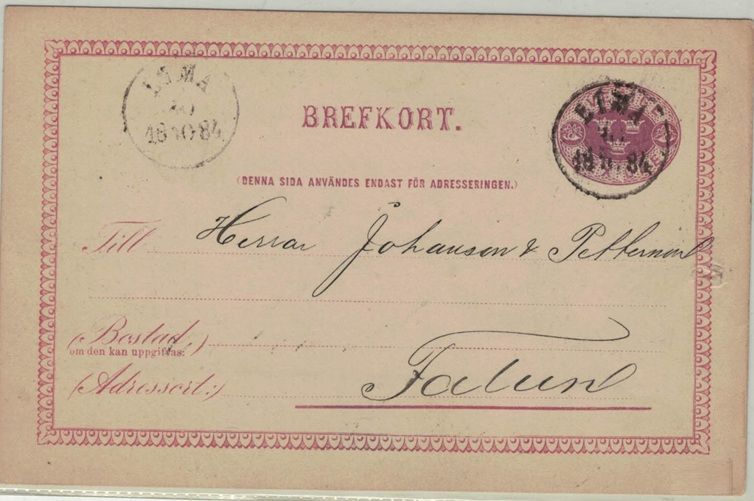 LIMA
10
1884
BREFKORT.
LIMA
(DENNA SIDA ANVÄNDES ENDAST FÖR ADRESSERINGEN.)
Till Herrar Johanson & Petterson
(Bostad
om den kan uppgifvas:)
(Adressort:) Falun